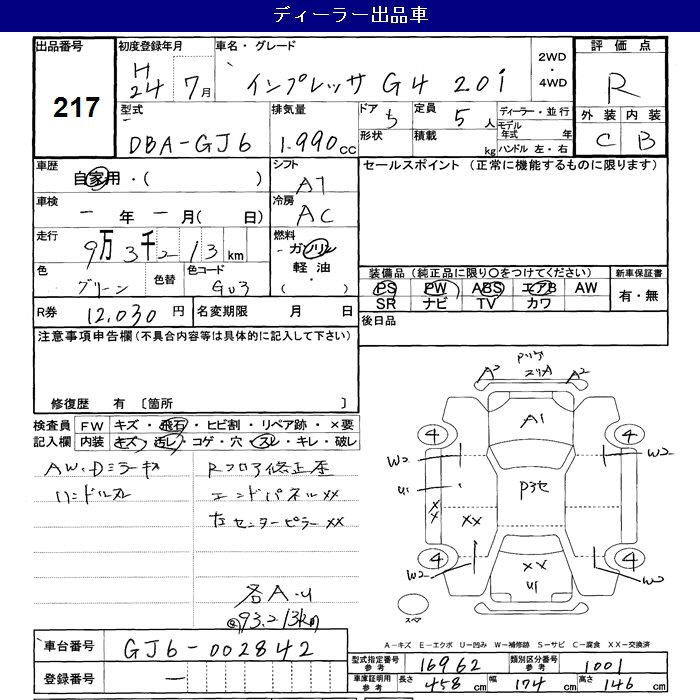 ディーラー出品車
出品番号 217
初度登録年月 H24年 7月
車名・グレード インプレッサ G4 2.0i
2WD・4WD
評価点 R
外装 C 内装 B
型式 DBA-GJ6
排気量 1.990cc
ドア 5 形状
定員 5人 積載 kg
ディーラー・並行
モデル年式 年
ハンドル 左・右
車歴 自家用・( )
シフト AT
セールスポイント(正常に機能するものに限ります)
車検 一年一月( 日)
冷房 AC
走行 9万3千213km
燃料 ガソリン 軽油・( )
色 グリーン 色替 色コード GU3
装備品(純正品に限り○をつけてください) 新車保証書
PS PW ABS エアB AW 有・無
SR ナビ TV カワ
R券 12,030円 名変期限 月 日
後日品
注意事項申告欄(不具合内容等は具体的に記入して下さい)
修復歴 有 〔箇所 〕
検査員記入欄
FW キズ・飛石・ヒビ割・リペア跡・×要
内装 キズ・汚レ・コゲ・穴・スレ・キレ・破レ
AW・Dミラーキズ
ハンドルスレ
Rフロア修正歴
エンドパネル××
左センターピラー××
各A・U
93.213km
A2 A2
A1
4 4 4 4
W2 W2
U1
P3セ
×× ××
××
U1
W2 W2
スペア
A-キズ E-エクボ U-凹み W-補修跡 S-サビ C-腐食 XX-交換済
車台番号 GJ6-002842
登録番号 ー
型式指定番号 参考 16962 類別区分番号 参考 1001
車庫証明用 参考 長さ 458cm 幅 174cm 高さ 146cm